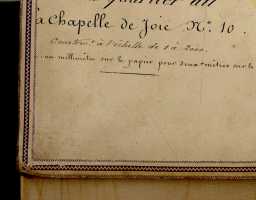 Quartier du
a Chapelle de Joie N.º 10.
Construit à l'échelle de 1 à 2000.
un millimètre sur le papier pour deux mètres sur le